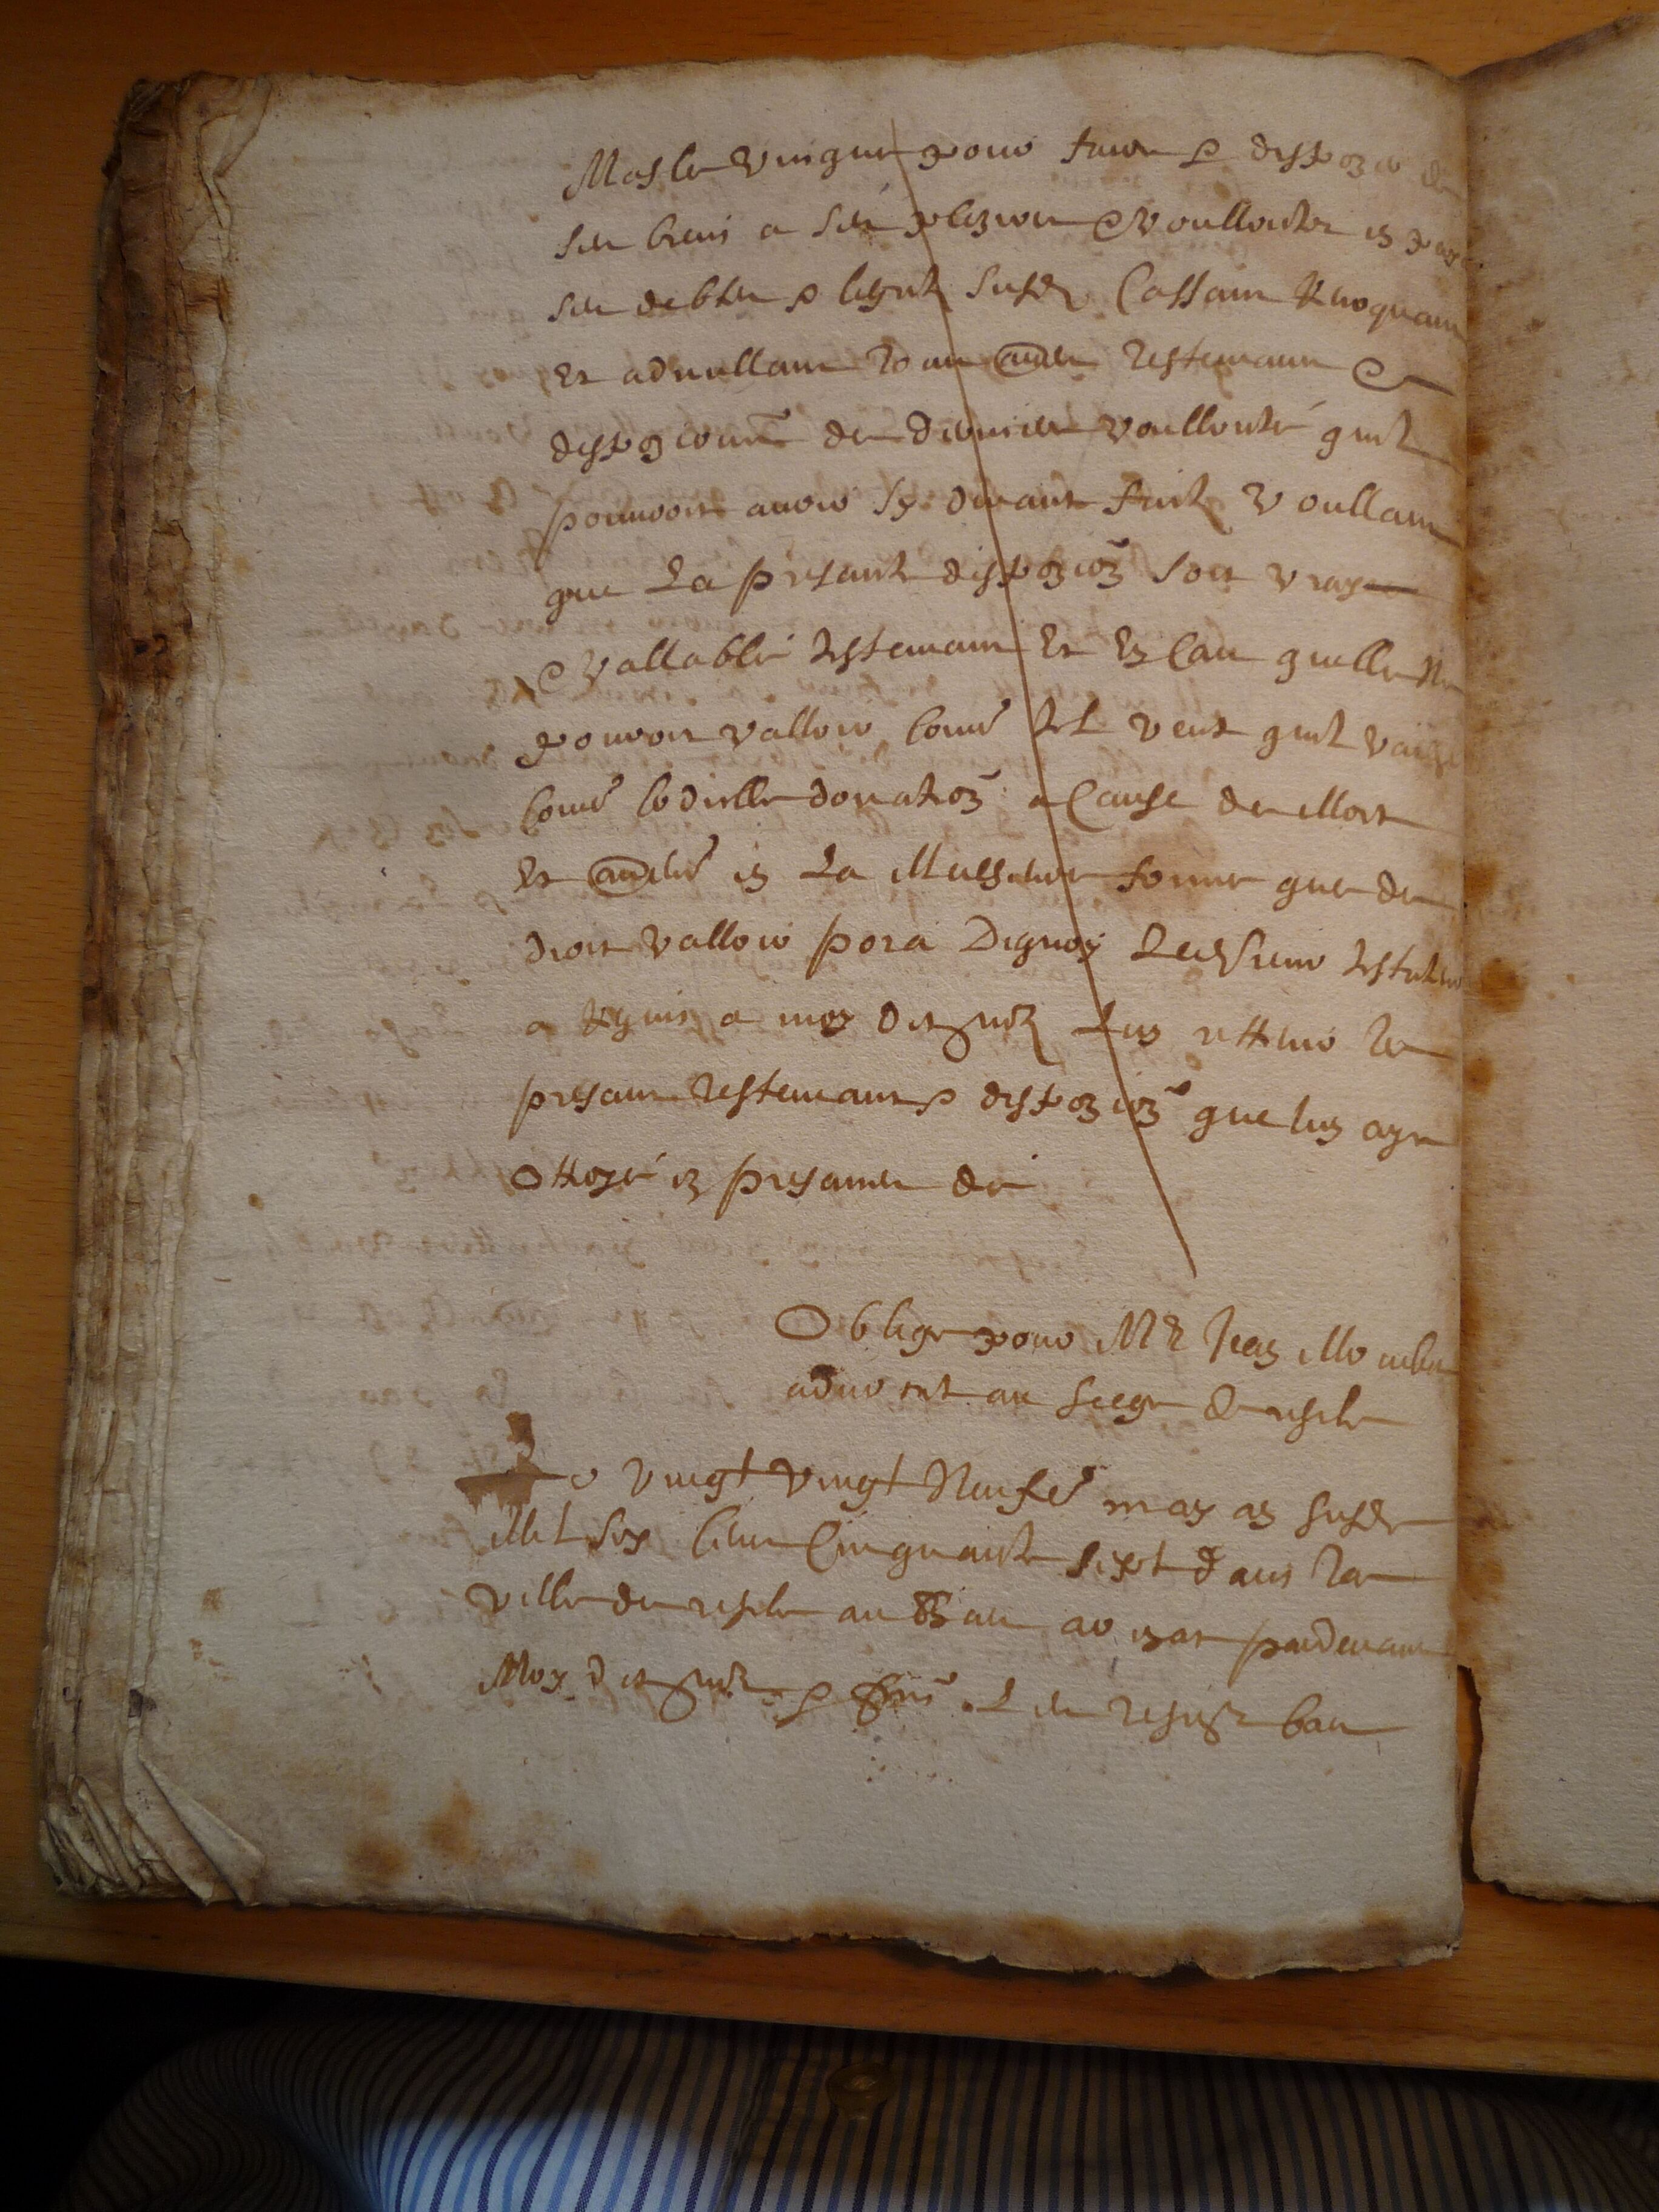 Masle vingne pour faire & dispozer de
ses biens a ses plezirs & voullontes en payant
ses debtes & legatz susdz Cassant Revoquant
Et adnullant tous autres testemant &
dispozicions de derniere voullonté quil
pouroit avoir sy devant faitz Voullant
que La presante dispozion soit vray
& vallable testemant Et En Cas quelle Ne
pouroit valloir comme tel veut quil vaille
comme codicille donation a Cause de Mort
Et autre en La Melheure forme que de
droit valloir pora Dequoy Led sieur testateur
a Requis a moy dit notr Luy retenir le
presant testemant & dispozion que luy aye
ottroyé en presance de
Oblige pour Me Jean
advocat au siege
Le vingt vingt Neufie may an susd
Mil six cens Cinquante sept dans la
ville de au bas par devant
Moy dit notr & pnt Les tesmz bas